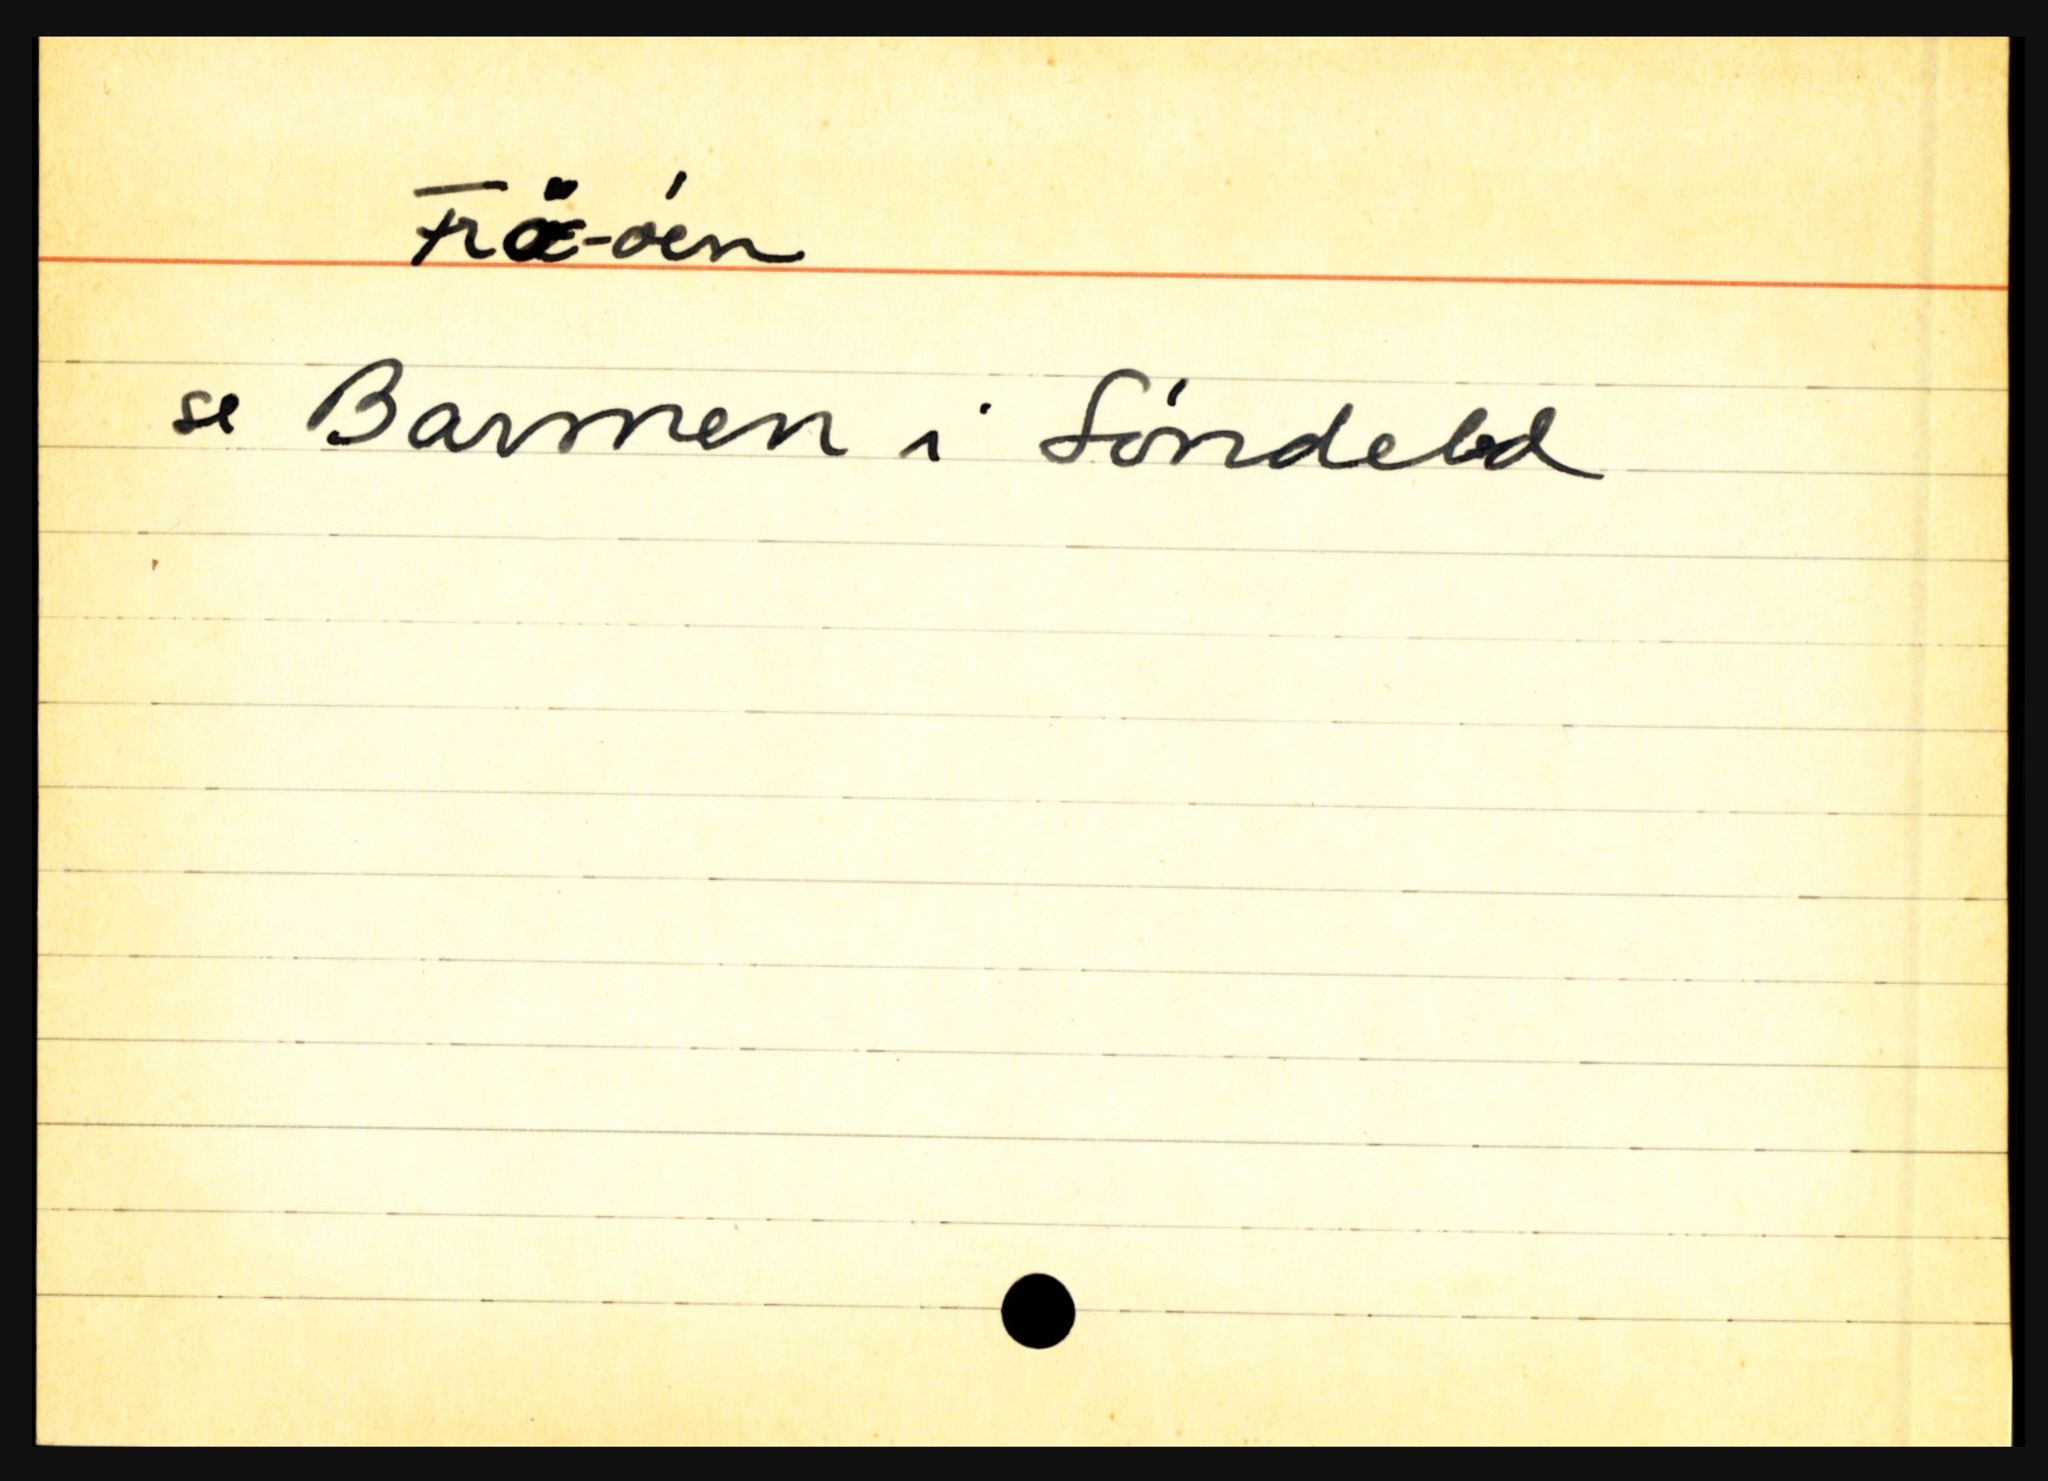 Fræ-óen
se Barmen i Sóndeled